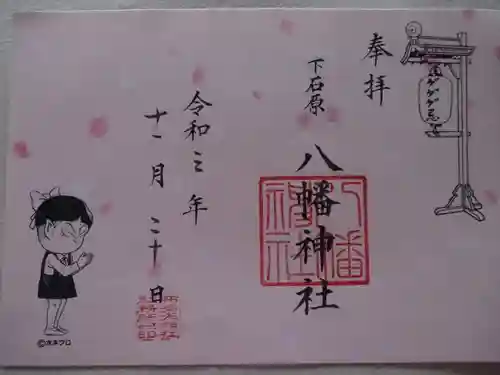 奉拝
下石原
八幡神社
八幡
神社
令和三年
十一月二十日
©水木プロ